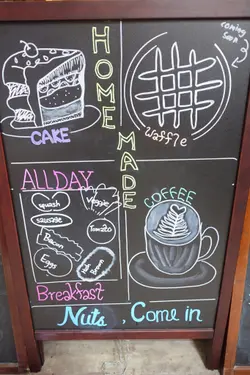 coming soon
HOME MADE
CAKE
Waffle
ALLDAY
squash
sausage
Bacon
Eggs
Veggie
Tomato
COFFEE
Breakfast
Nuts, Come in